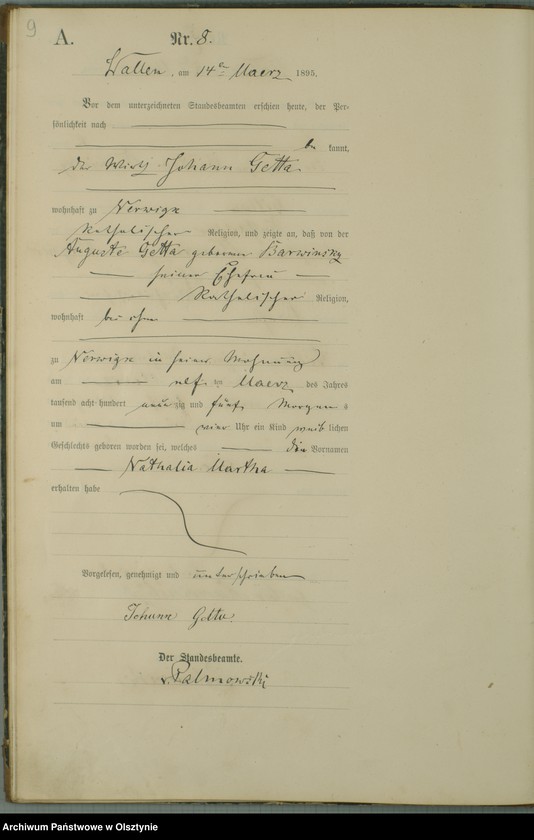 9
A.
Nr. 8.
Wallen, am 14ten Maerz 1895.
Vor dem unterzeichneten Standesbeamten erschien heute, der Per-
sönlichkeit nach
be kannt,
der Wirth Johann Getta
wohnhaft zu Nerwigk
katholischer Religion, und zeigte an, daß von der
Auguste Getta geborenen Barwinsky
seiner Ehefrau
katholischer Religion,
wohnhaft bei ihm
zu Nerwigk in seiner Wohnung
am elf ten Maerz des Jahres
tausend acht hundert neunzig und fünf Morgens
um vier Uhr ein Kind weib lichen
Geschlechts geboren worden sei, welches die Vornamen
Nathalia Martha
erhalten habe
Vorgelesen, genehmigt und unterschrieben
Johann Getta.
Der Standesbeamte.
v. Palmowski
Archiwum Państwowe w Olsztynie